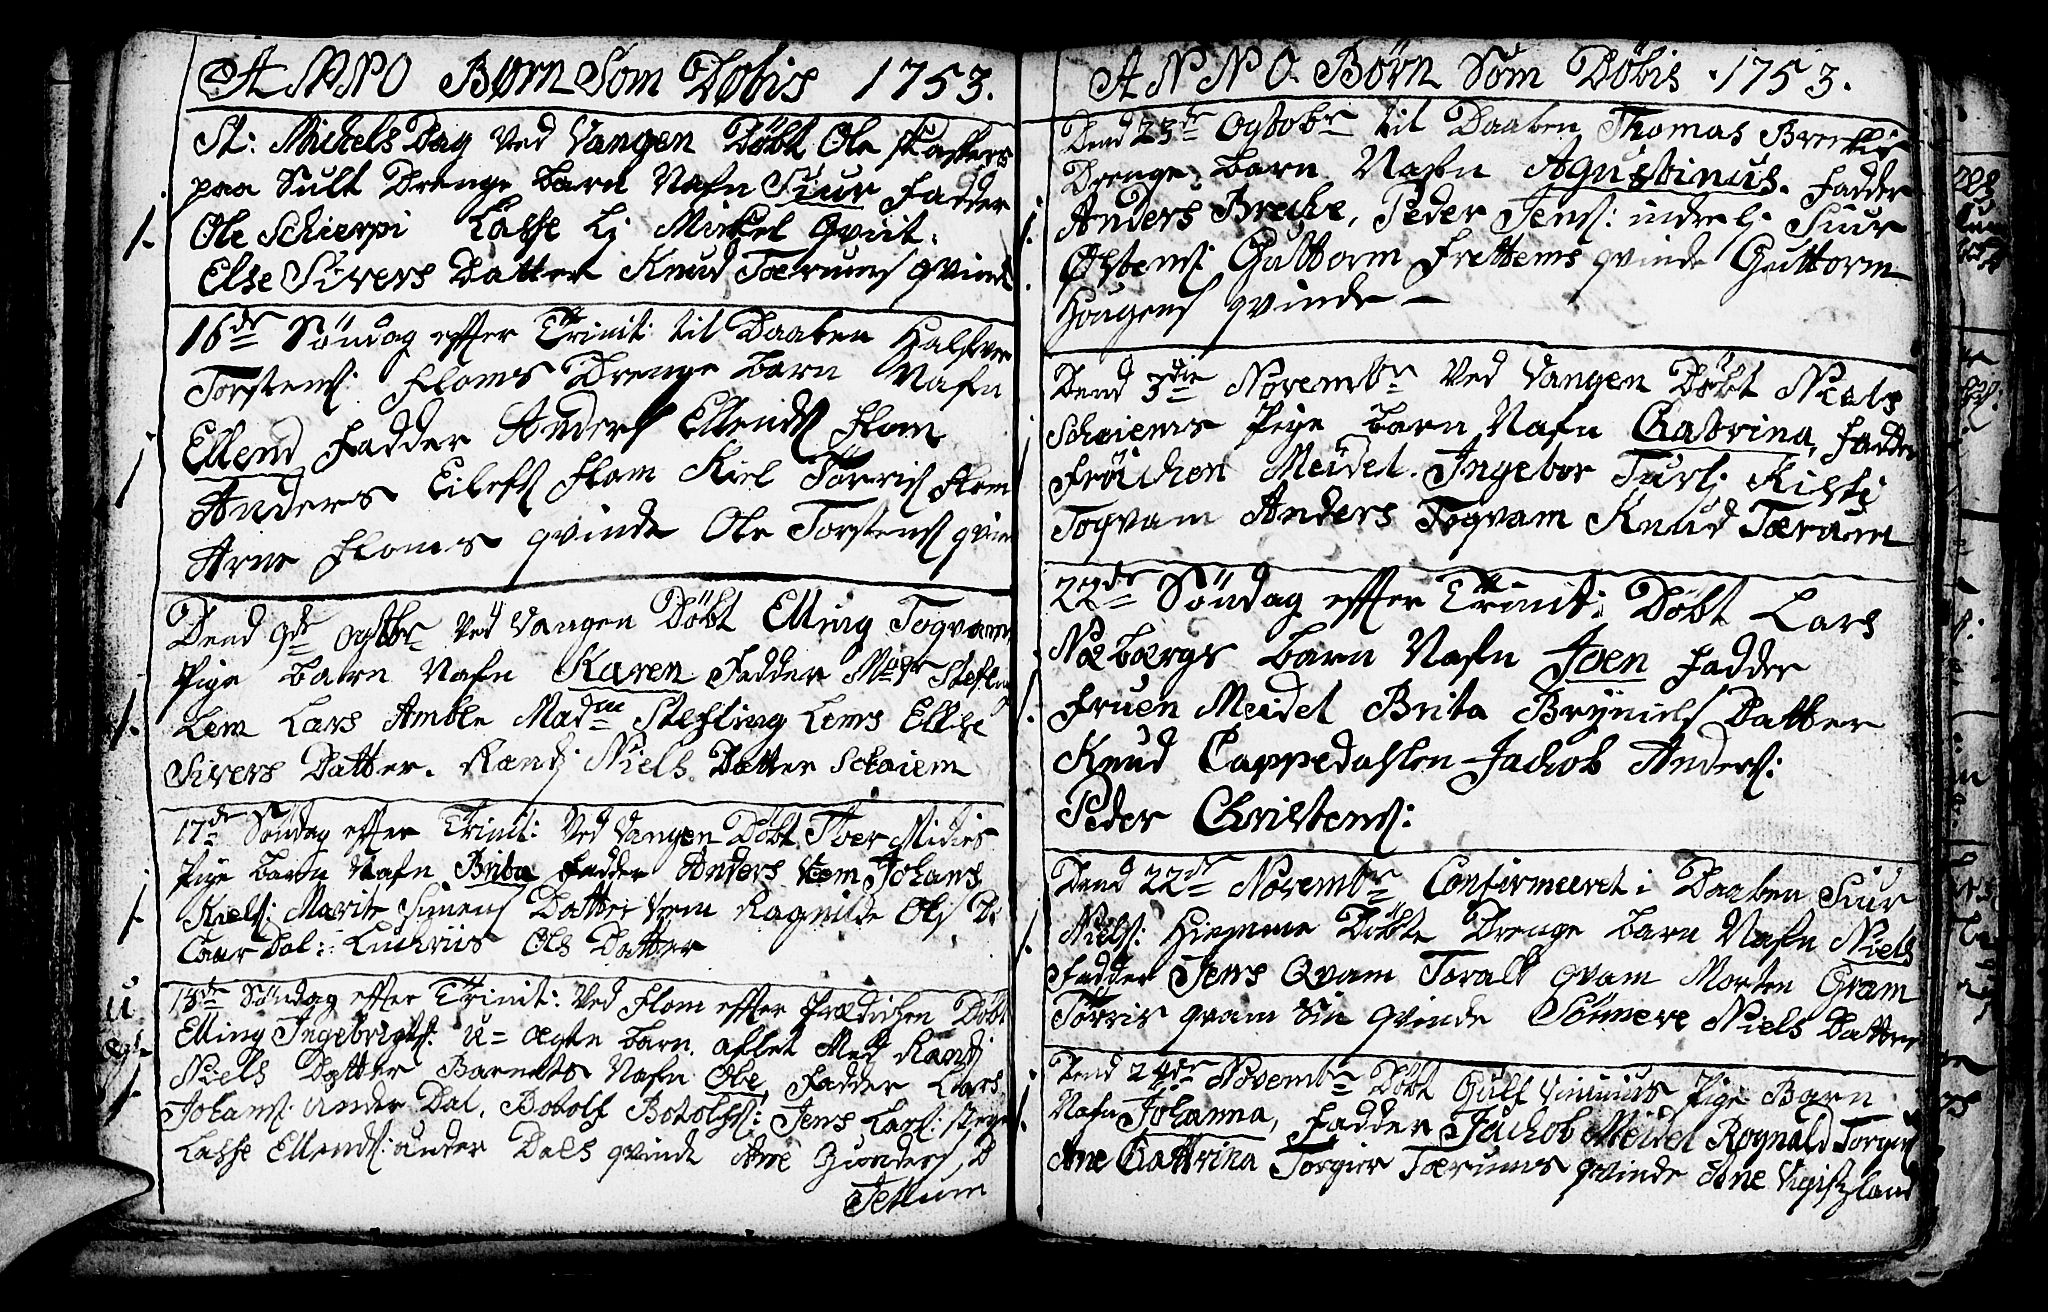 ANNO Børn Som Döbis 1753.
St: Michels Dag Ved Vangen Döbt Ole Skasters
paa Sult Drenge barn Nafn Siur Fadder
1. Ole Schierpi Lasse Lj Mickel Qviit:
Else Sivers Datter Knud Tærums qvinde
16de Søndag effter Trinit: til Daaben Halfver
Torstens: Floms Drenge barn Nafn
1 Ellend Fadder Anders Ellends Flom
Anders Eilefs Flom Kiel Törris Flom
Arne Floms qvinde Ole Torstens qvin
Dend 9de Ogtbr Ved Vangen Döbt Elling Togvam
Pige barn Nafn Karen Fadder Mosr Stefl
1. Lem Lars Amble Madme Stefling Lems Ellse
Sivers Datter. Randj Niels Datter Schaiem
17de Søndag effter Trinit: Ved Vangen Döbt Toer Midies
Pige barn Nafn Brita Fadder Anders Vem Johans
1. Kiels: Marite Simens Datter Vem Ragnilde Ols D:
Caar Dal: Luchriis Ols Datter
u 18de Søndag effter Trinit: Ved Flom effter Prædichen Döbt
Elling Ingebrigts: u=ægte barn. aflet Med Randj
Niels Datter Barnets Nafn Ole, Fadder Lars
1. Johans: under Dal, Botolf Botolfs: Jens Lars:
Lasse Ellends: under Dals qvinde Ane Gunders D
Tellum
ANNO. Børn Som Döbis 1753.
Dend 23de Ogtobr til Daaben Thomas Brechis
Drenge barn Nafn Agustinus. Fadder
1. Anders Breche, Peder Jens: indre lj Siur
Östens: Guttorm Frettems qvinde Guttorm
Hougens qvinde —
Dend 3die Novembr Ved Vangen Döbt Niels
1 Schaiems Pige barn Nafn Catrina, Fadder
Fröichen Meidel. Ingebor Turlj Kistj
Togvam Anders Togvam Knud Tærum
22de Søndag effter Trinit: Döbt Lars
Næbærgs barn Nafn Joen Fadder
1. Fruen Meidel Brita Bryniels Datter
Knud Cappedahlen Jachob Anders:
Peder Christens:
Dend 22de Novembr Confirmeeret i Daaben Siur
1. Niels: Hiemme Döbte Drenge barn Nafn Niels
Fadder Jens Qvam Toralt qvam Morten Gram
Törris qvam sin qvinde Sönneve Niels Datter
Dend 24de Novembr Döbt Gulf Pige Barn
1. Nafn Johanna, Fadder Jachob Meidel Rognald Torgiers
Ane Cattrina Torgier Tærums qvinde Ane